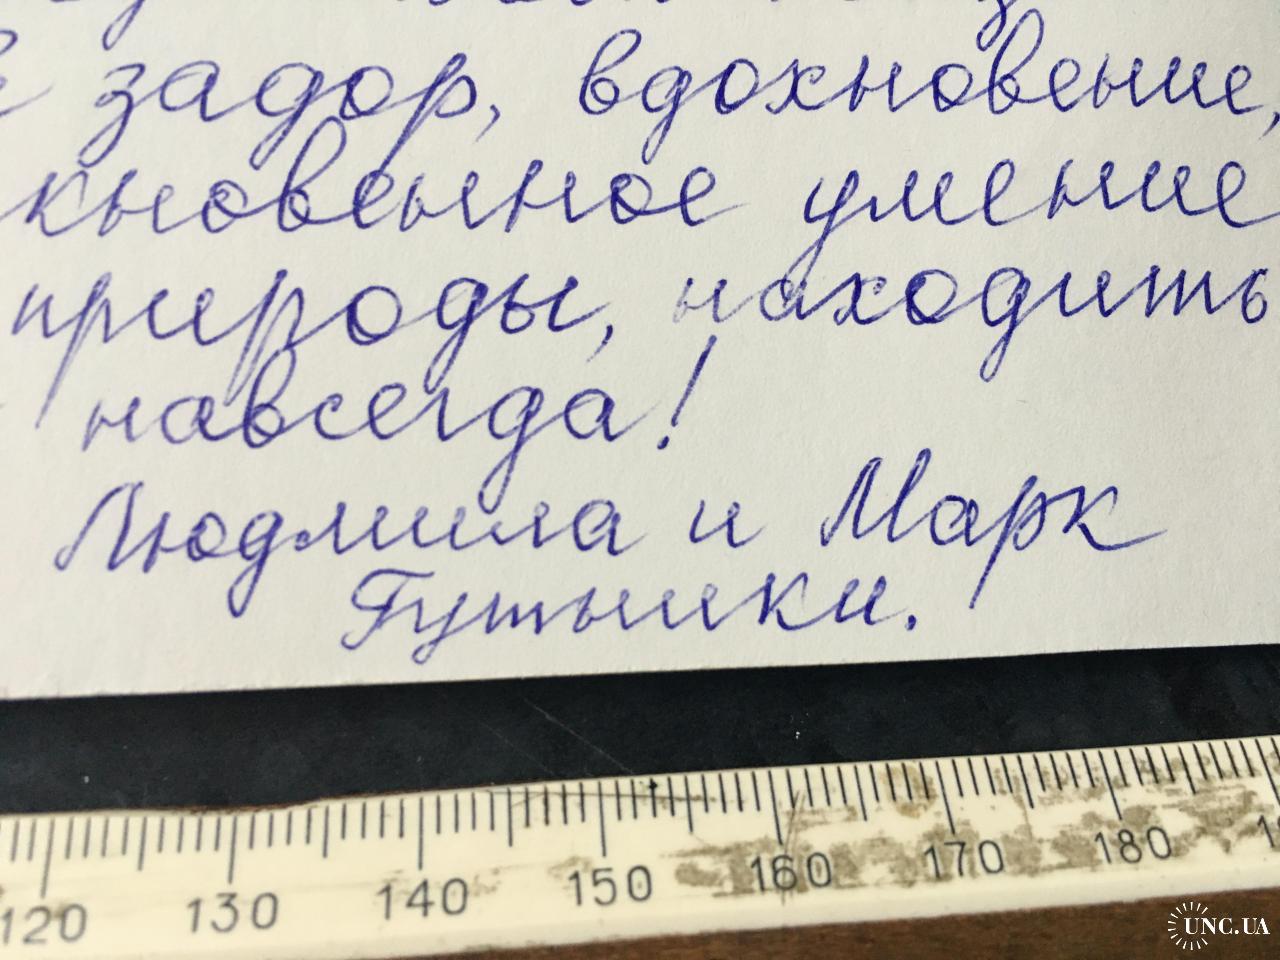 задор, вдохновение,
кновенное умение
природы, находить
навсегда!
Людмила и Марк
Гутники.
120 130 140 150 160 170 180
UNC.UA